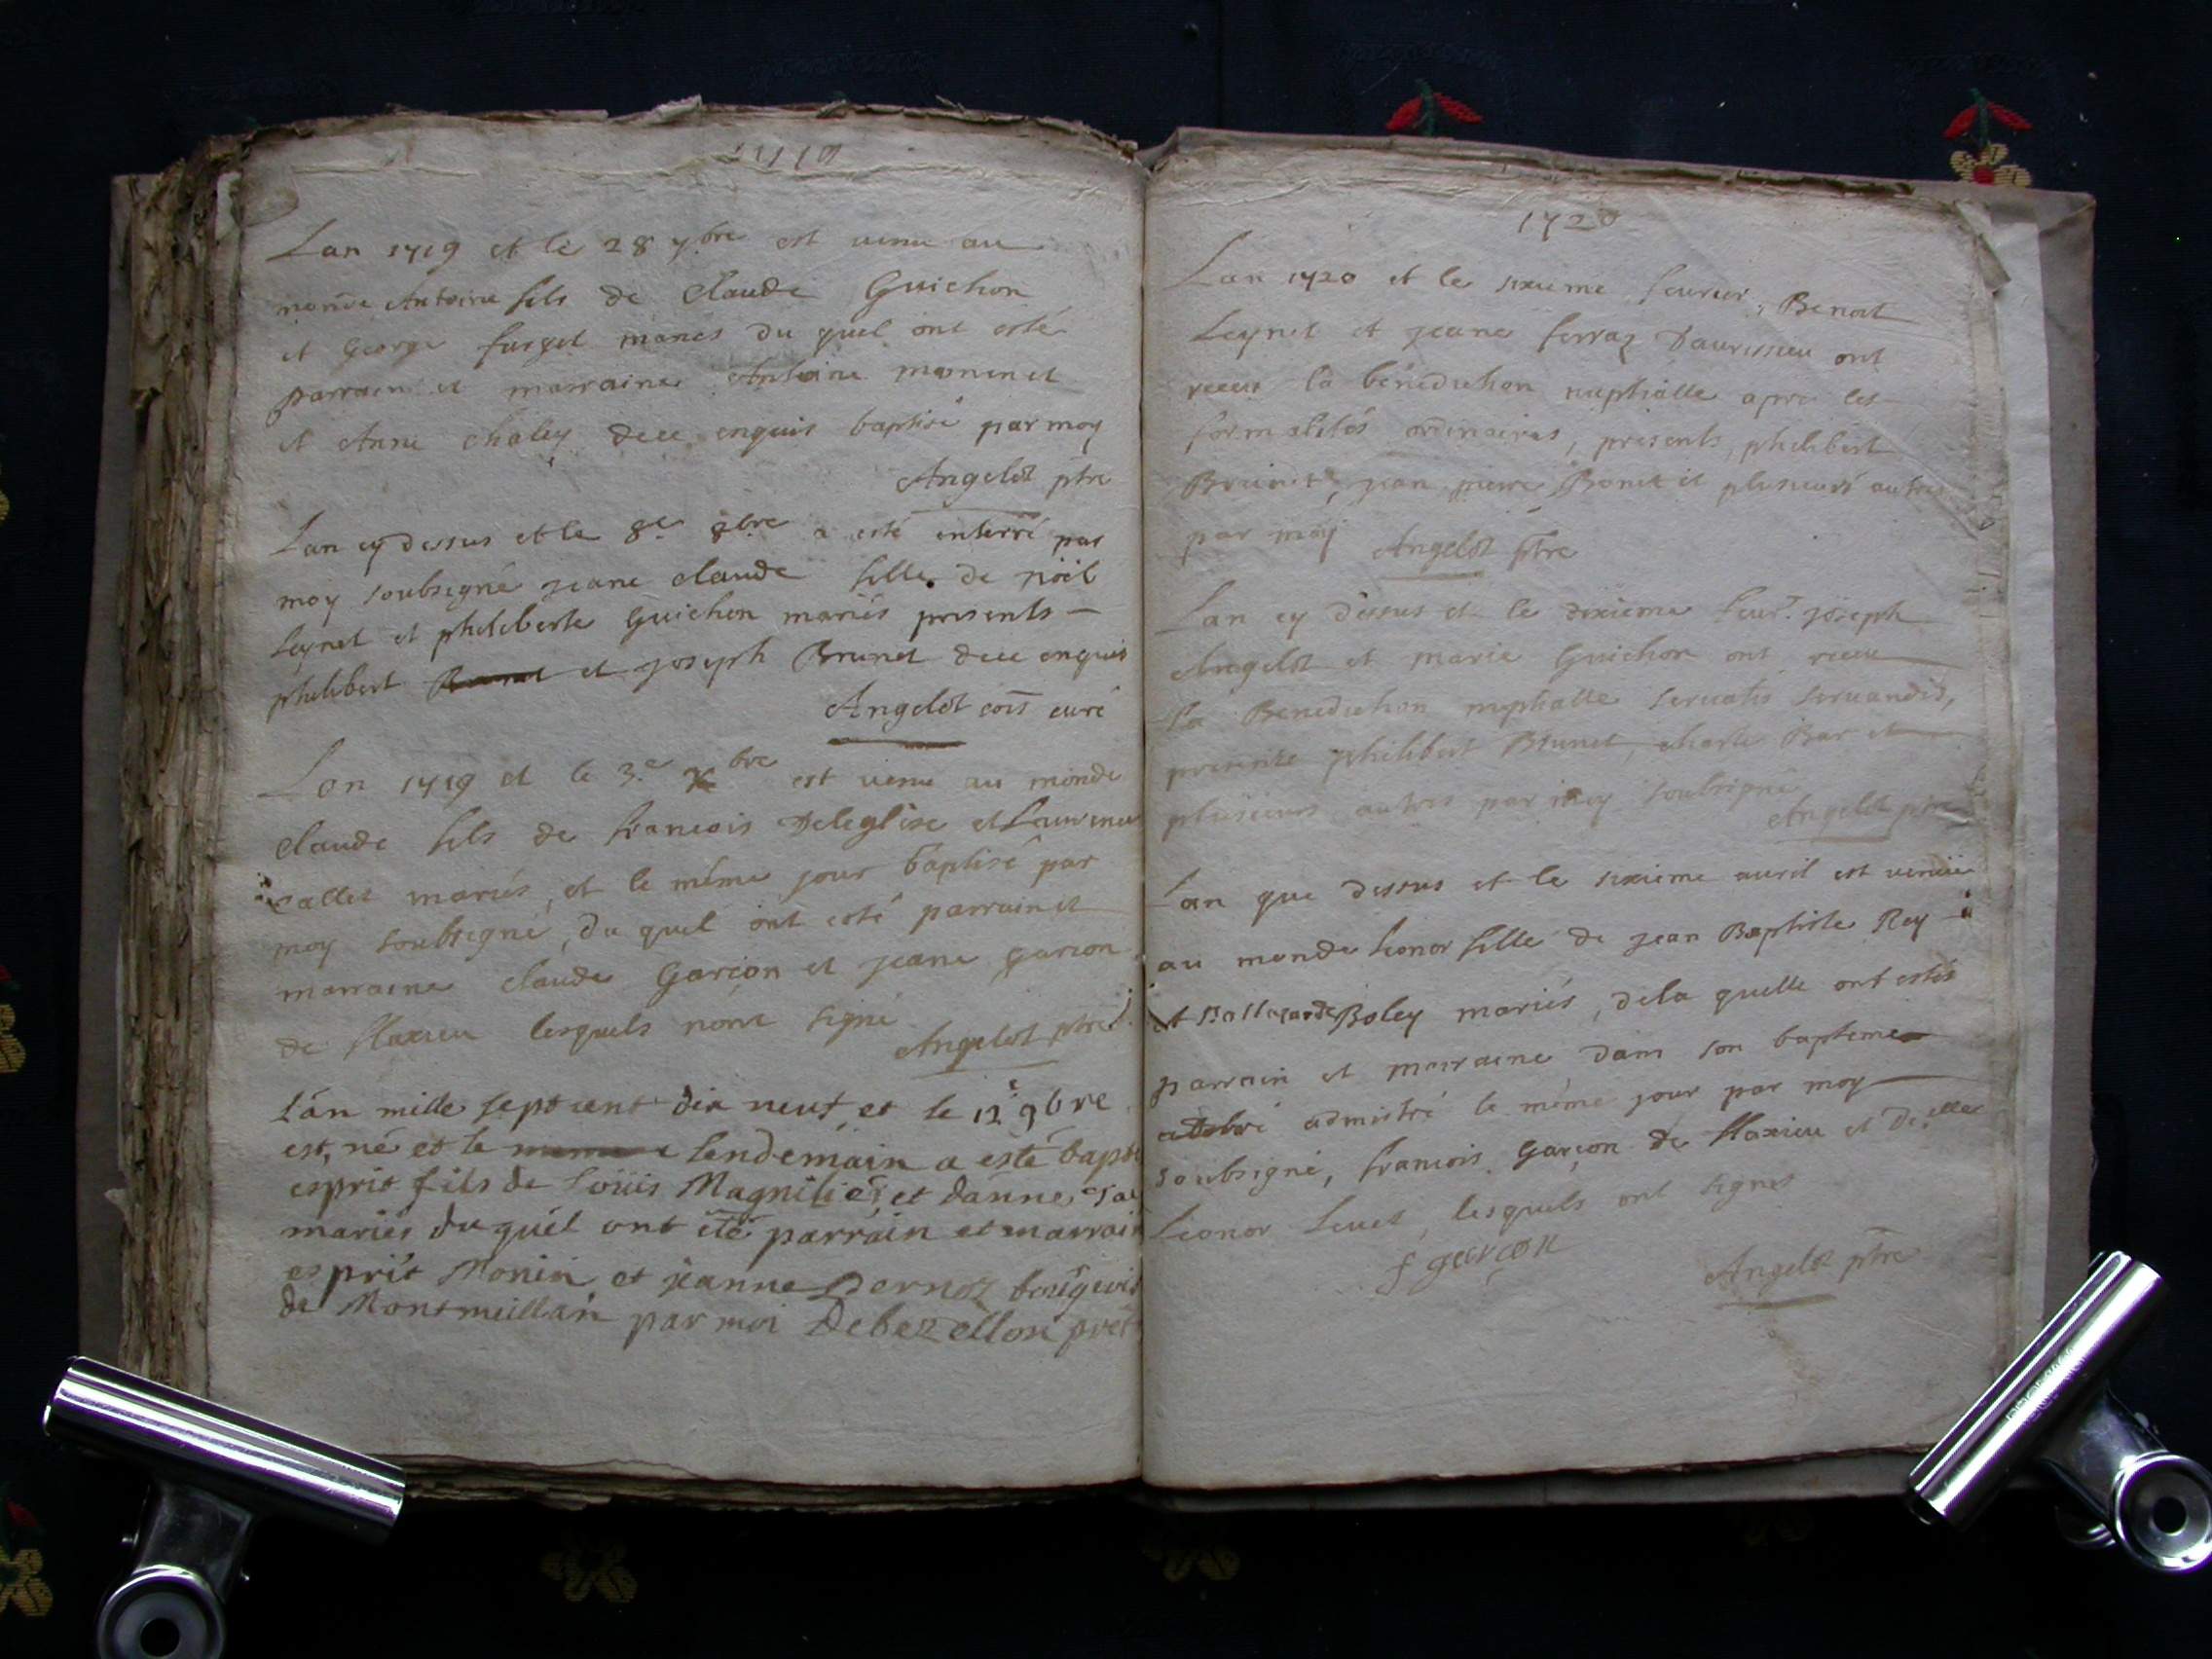 1719
Lan 1719 et le 28 7bre est venu au
monde Antoine fils de Claude Guichon
et George furget mariés du quel ont esté
parrain et marraine Antoine monin et
et Anne chaley dece enquis baptisé par moy
Angelot ptre
Lan cy dessus et le 8e 8bre a esté enterré par
moy soubsigné jeane claude fille de noël
leynet et philiberte Guichon mariés presents
philibert et joseph Brunet dece enquis
Angelot cois curé
Lan 1719 et le 3e xbre est venu au monde
claude fils de francois Deleglise et Laurence
callet mariés, et le même jour baptisé par
moy soubsigné, du quel ont esté parrain et
marraine claude Garcon et jeane garcon
de flaxieu lesquels nont signé
Angelot ptre
Lán mille sept cent dix neuf et le 12 9bre
est, né et le lendemain a esté bapt
esprit fils de Loüis Magnilier et danne
mariés du quél ont été parráin et marrain
esprit Monin et jeanne Pernoz bourgeois
de Montmeillan par moi Debezellon pret
1720
Lan 1720 et le sixieme feurier, Benoit
Leynet et jeane ferraz Daurissieu ont
receu la bénédiction nuptialle apres les
formalités ordinaires, présents, philibert
Brunet, jean pierre Bonet et plusieurs autres
par moy Angelot ptre
Lan cy dessus et le dixieme feur. joseph
Angelot et marie Guichon ont receu
la Benediction nuptialle servatis servandis,
presente philibert Brunet, charle Bar et
plusieurs autres par moy soubsigné
Angelot ptre
Lan que dessus et le sixieme auril est venüe
au monde lionor fille de jean Baptiste Rey
et Baltazarde Boley mariés, dela quelle ont estés
parrain et marraine dans son bapteme
admistré le même jour par moy
soubsigné, francois Garçon de flaxieu et delle
Lionor Leuet, lesquels ont signes
f garcon
Angelot ptre